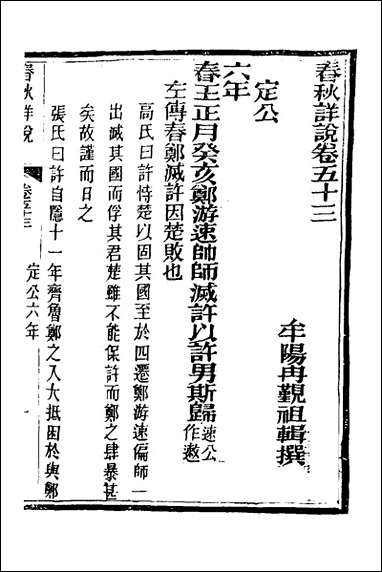 春秋詳說卷五十三
牟陽冉覲祖輯撰
定公
六年
春王正月癸亥鄭游速帥師滅許以許男斯歸速公作遬
左傳春鄭滅許因楚敗也
高氏曰許恃楚以固其國至於四遷鄭游速偏師一
出滅其國而俘其君楚雖不能保許而鄭之肆暴甚
矣故謹而日之
張氏曰許自隱十一年齊魯鄭之入大抵困於與鄭
春秋詳說
卷五十三
定公六年